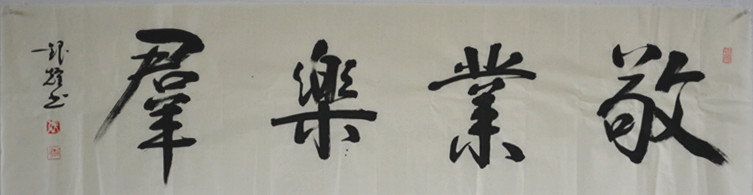 敬業樂羣